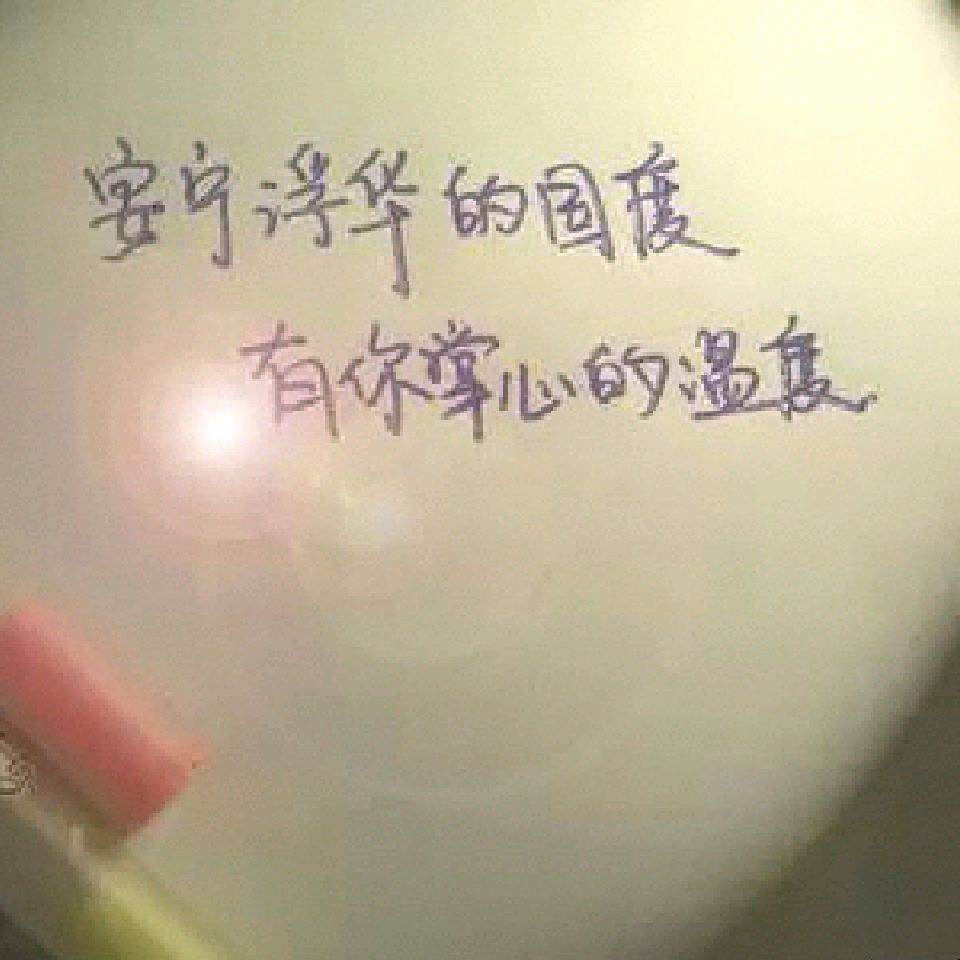 安宁浮华的国度
有你掌心的温度